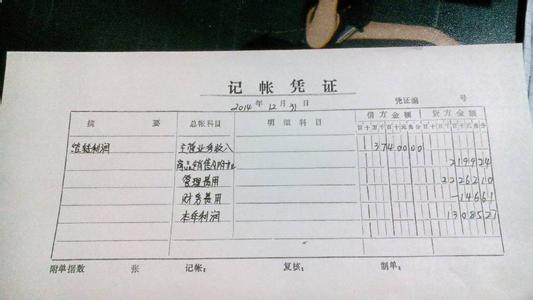 记帐凭证
2014年12月31日 凭证编 号
摘 要 总帐科目 明细科目 借方金额 贷方金额
百十万千百十元角分 百十万千百十元角分
结转利润 主营业务收入 3740000
商品销售 219924
管理费用 2226210
财务费用 -14661
本年利润 1308527
附单据数 张 记帐: 复核: 制单: